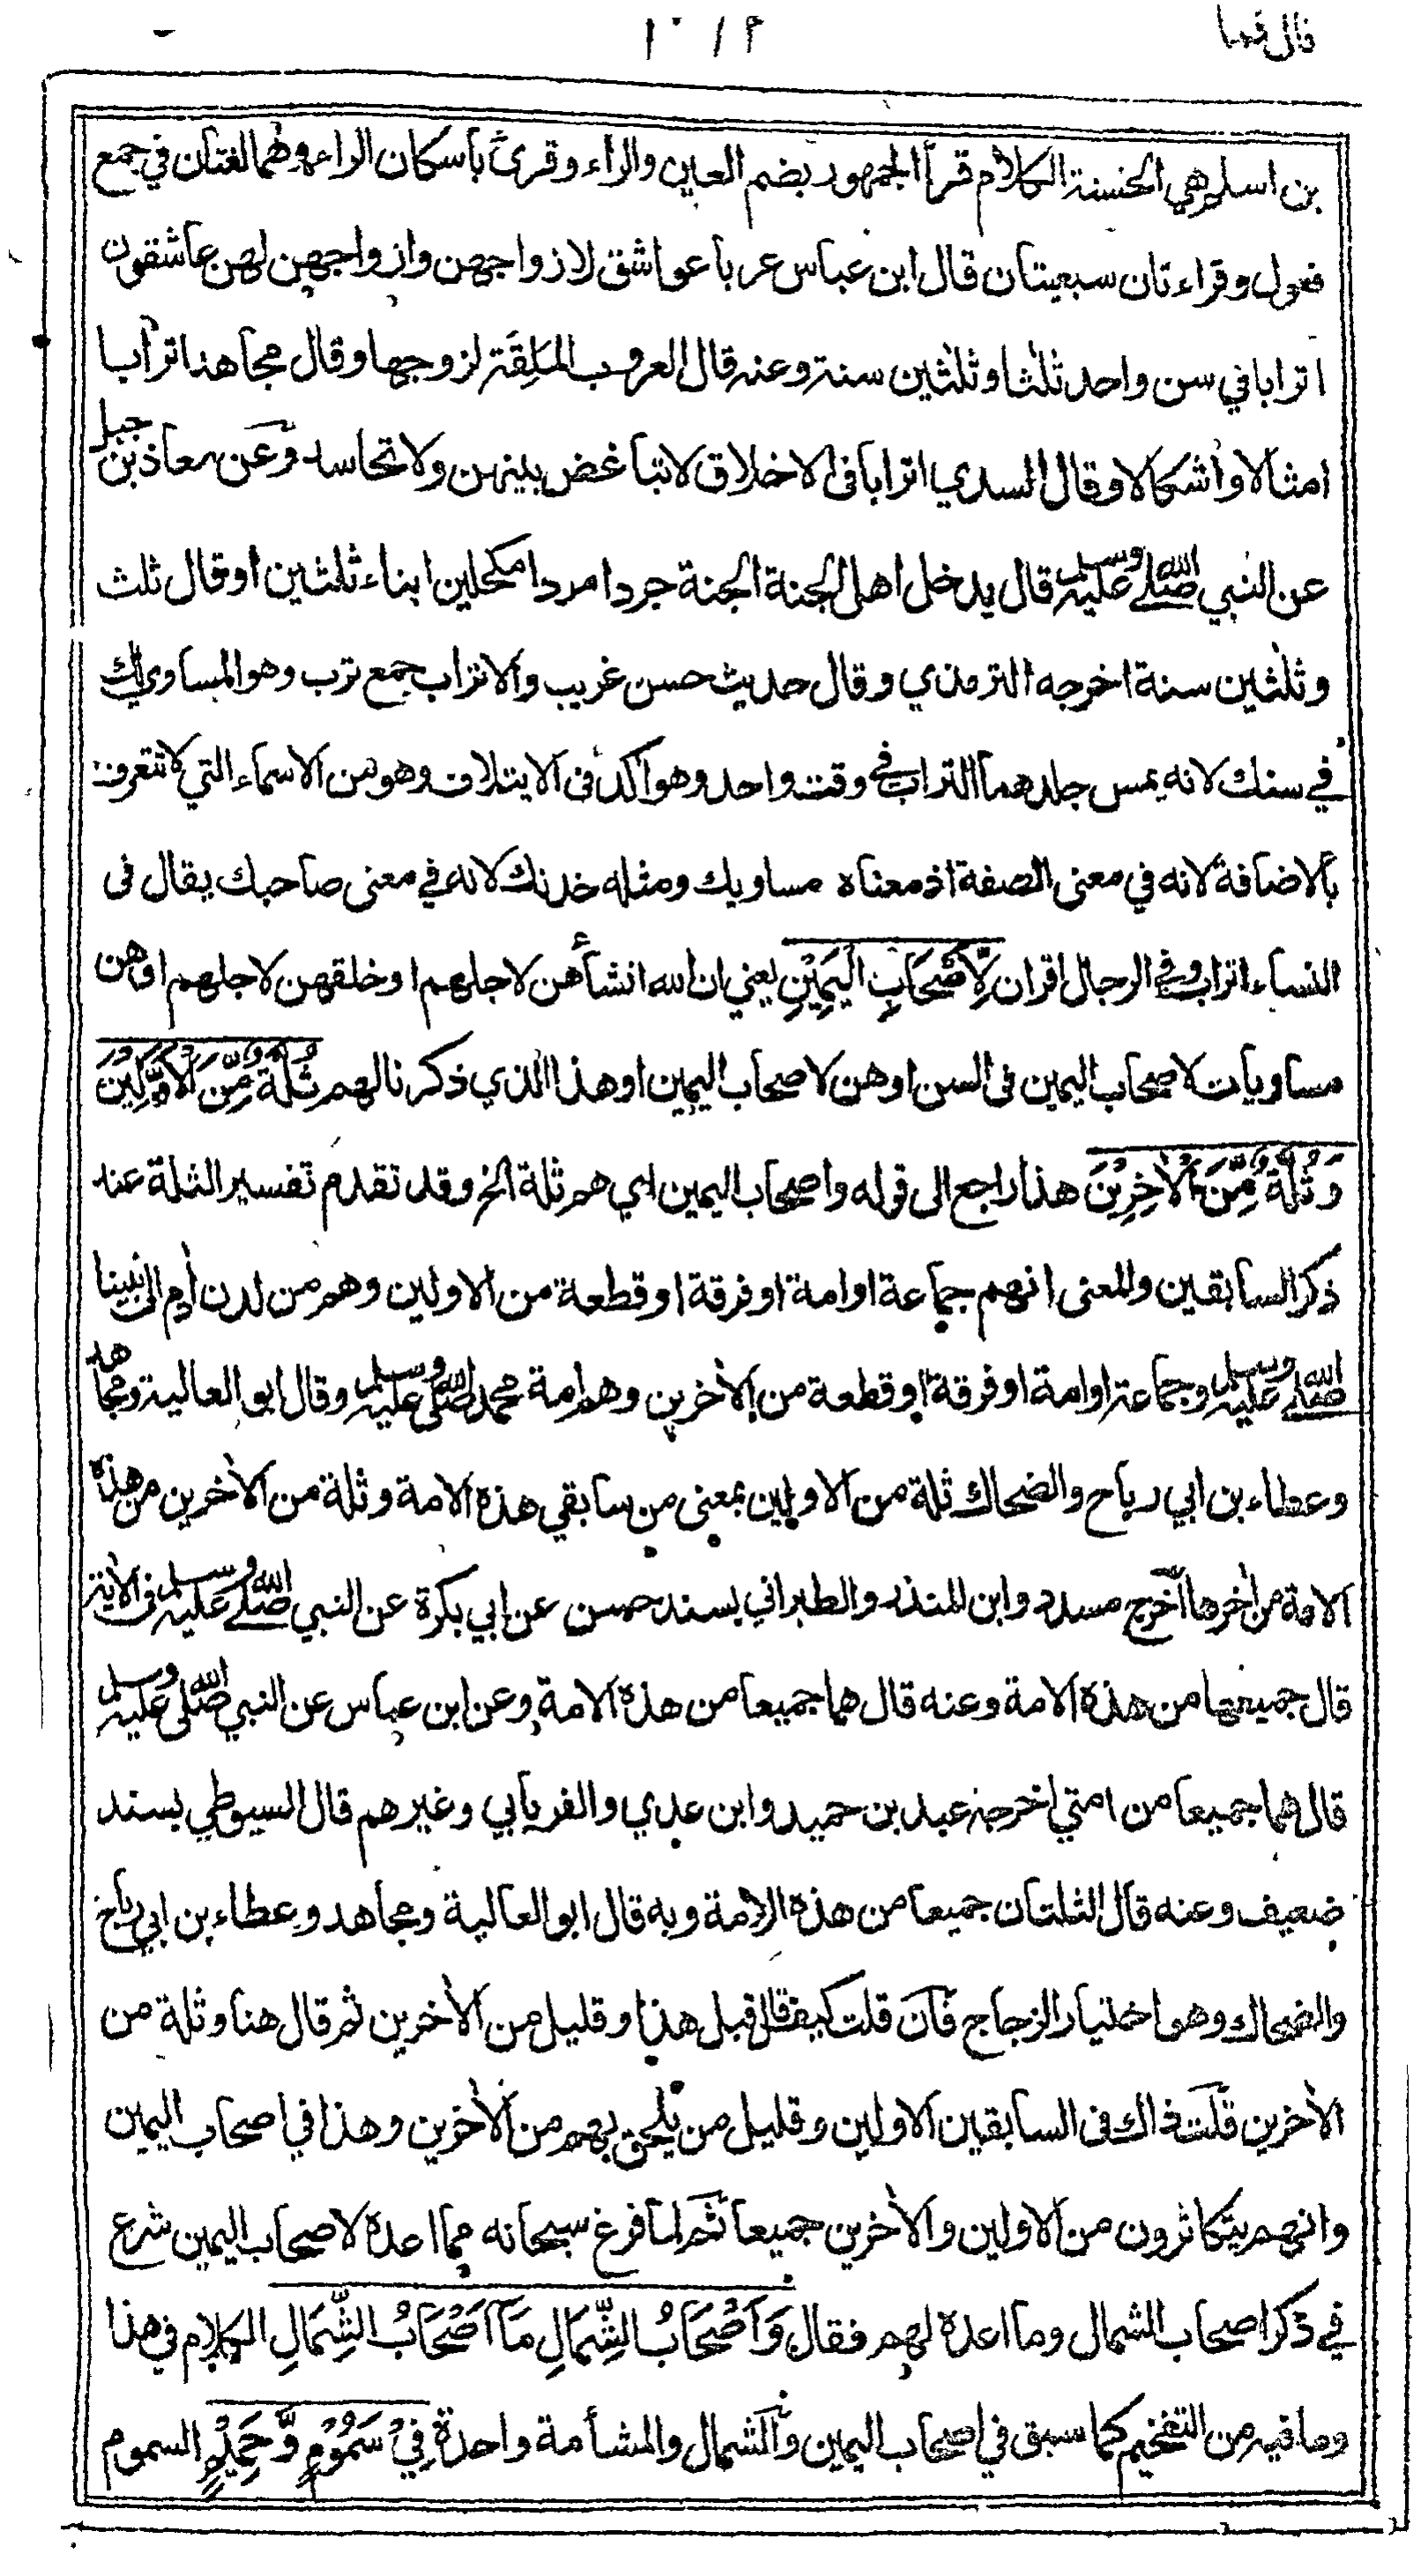 قال فما
١٠١٩
بن اسلم هي الحسنة الكلام قرأ الجمهور بضم العين والراء وقرئ باسكان الراء وهما لغتان في جمع
فعول وقراءتان سبعيتان قال ابن عباس عربا عواشق لازواجهن وازواجهن لهن عاشقون
اترابا في سن واحد ثلثا وثلثين سنة وعنه قال العروب الملِقَة لزوجها وقال مجاهد اترابا
امثالا واشكالا وقال السدي اترابا في الاخلاق لا تباغض بينهن ولا تحاسد وعن معاذ بن جبل
عن النبي صلى الله عليه وسلم قال يدخل اهل الجنة الجنة جردا مردا مكحلين ابناء ثلثين او قال ثلث
وثلثين سنة اخرجه الترمذي وقال حديث حسن غريب والاتراب جمع ترب وهو المساوي لك
في سنك لانه يمس جلدهما التراب في وقت واحد وهو اكد في الايتلاف وهو من الاسماء التي لا تتعرف
بالاضافة لانه في معنى الصفة اذ معناه مساويك ومثله خدنك لانه في معنى صاحبك يقال في
النساء اتراب وفي الرجال اقران لِّأَصْحَابِ الْيَمِيْنِ يعني ان الله انشأهن لاجلهم او خلقهن لاجلهم او هن
مساويات لاصحاب اليمين في السن او هن لاصحاب اليمين او هذا الذي ذكرنا لهم ثُلَّةٌ مِّنَ الْأَوَّلِيْنَ
وَثُلَّةٌ مِّنَ الْآخِرِيْنَ هذا راجع الى قوله واصحاب اليمين اي هم ثلة الخ وقد تقدم تفسير الثلة عند
ذكر السابقين والمعنى انهم جماعة او امة او فرقة او قطعة من الاولين وهم من لدن أدم الى نبينا
صلى الله عليه وسلم وجماعة او امة او فرقة او قطعة من الأخرين وهم امة محمد صلى الله عليه وسلم وقال ابو العالية ومجاهد
وعطاء بن ابي رباح والضحاك ثلة من الاولين بمعنى من سابقي هذه الامة وثلة من الأخرين من هذه
الامة من أخرها أخرج مسدد وابن المنذر والطبراني بسند حسن عن ابي بكرة عن النبي صلى الله عليه وسلم في الأية
قال جميعها من هذه الامة وعنه قال هما جميعا من هذه الامة وعن ابن عباس عن النبي صلى الله عليه وسلم
قال هما جميعا من امتي اخرجه عبد بن حميد وابن عدي والفريابي وغيرهم قال السيوطي بسند
ضعيف وعنه قال الثلتان جميعا من هذه الامة وبه قال ابو العالية ومجاهد وعطاء بن ابي رباح
والضحاك وهو اختيار الزجاج فان قلت كيف قال قبل هذا وقليل من الأخرين ثم قال هنا وثلة من
الأخرين قلت ذاك في السابقين الاولين وقليل من يلحق بهم من الأخرين وهذا في اصحاب اليمين
وانهم يتكاثرون من الاولين والأخرين جميعا ثم لما فرغ سبحانه مما اعده لاصحاب اليمين شرع
في ذكر اصحاب الشمال وما اعده لهم فقال وَأَصْحَابُ الشِّمَالِ مَا أَصْحَابُ الشِّمَالِ الكلام في هذا
وما فيه من التفخيم كما سبق في اصحاب اليمين والشمال والمشأمة واحدة فِيْ سَمُوْمٍ وَّحَمِيْمٍ السموم